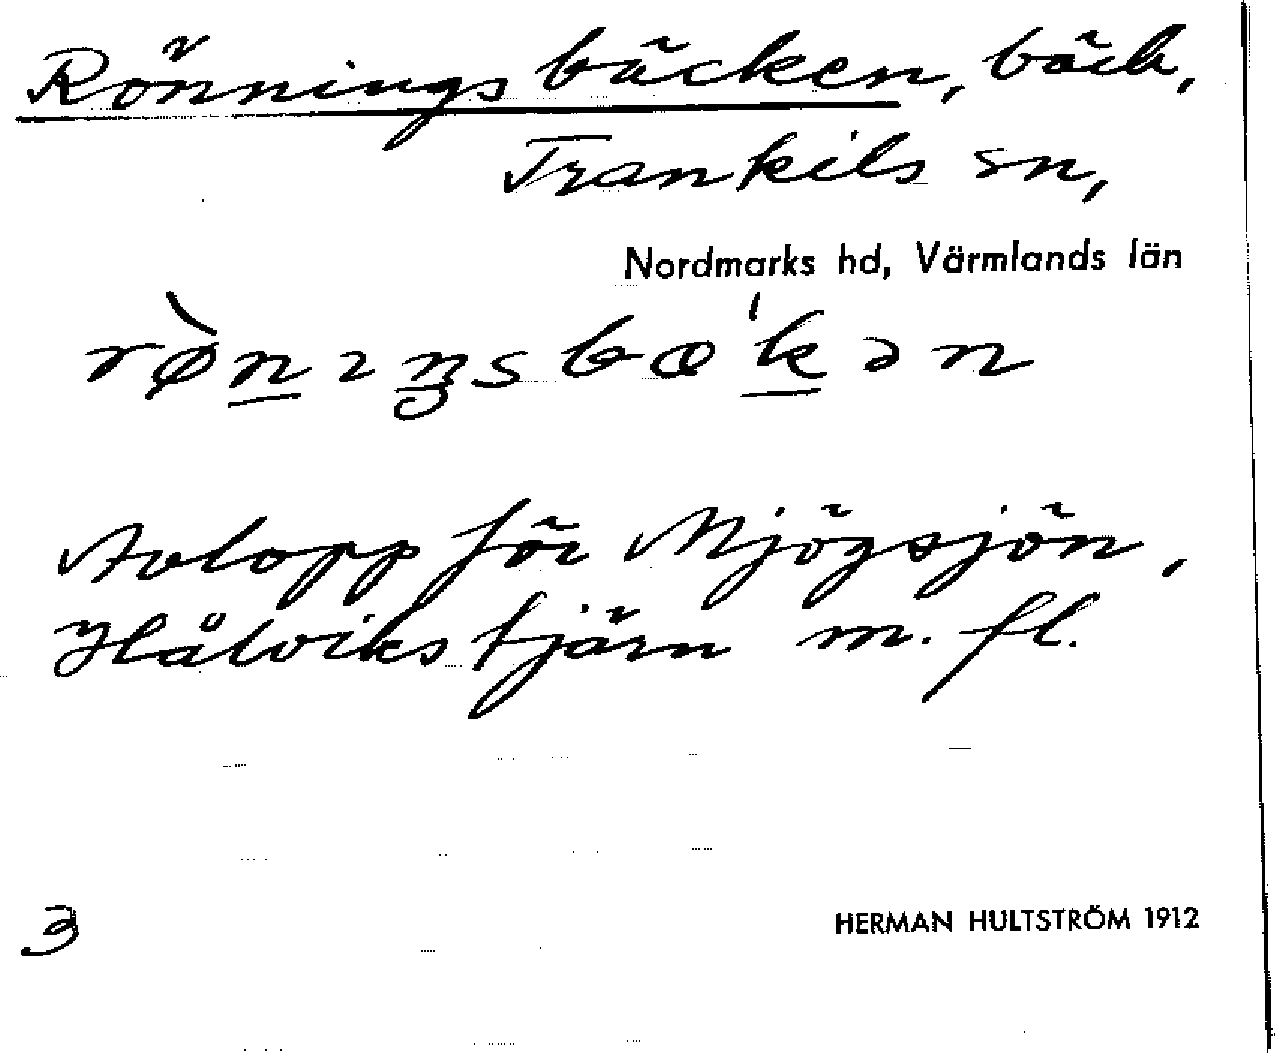 Rönningsbäcken, bäck,
Trankils sn,
Nordmarks hd, Värmlands län
rø̀nıŋsbæ'kən
Avlopp för Mjögsjön,
Hålvikstjärn m. fl.
3
HERMAN HULTSTRÖM 1912